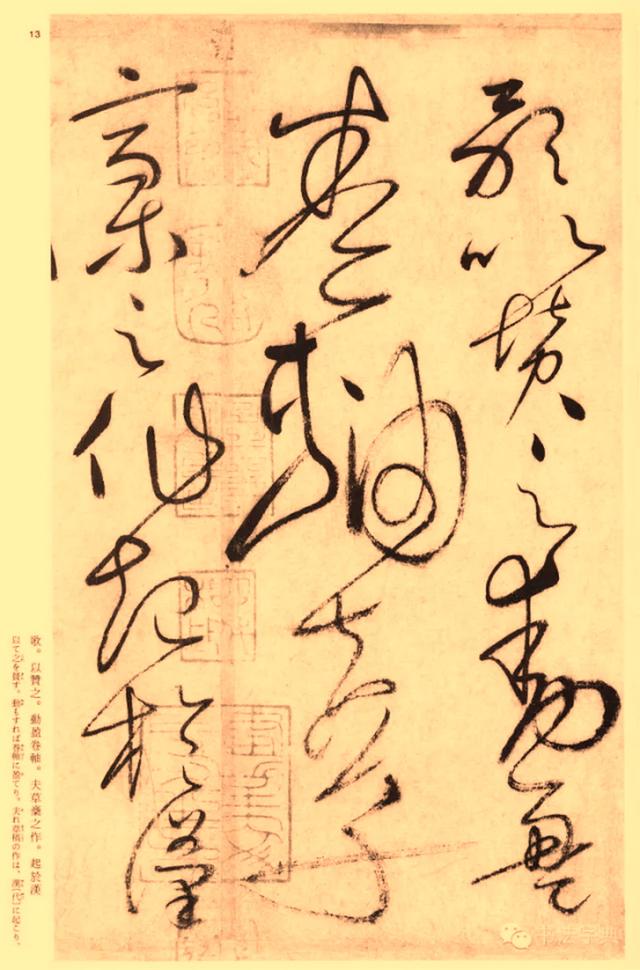 13
歌以贊之動盈
卷軸夫草
稾之作起於漢
歌。以贊之。動盈卷軸。夫草稾之作。起於漢
以て之を賛す。動もすれば卷軸に盈てり。夫れ草稿の作は、漢(代)に起こり、
书法字典